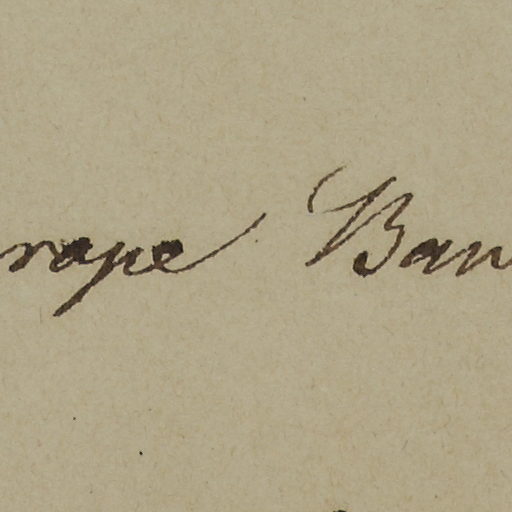 rape Ban